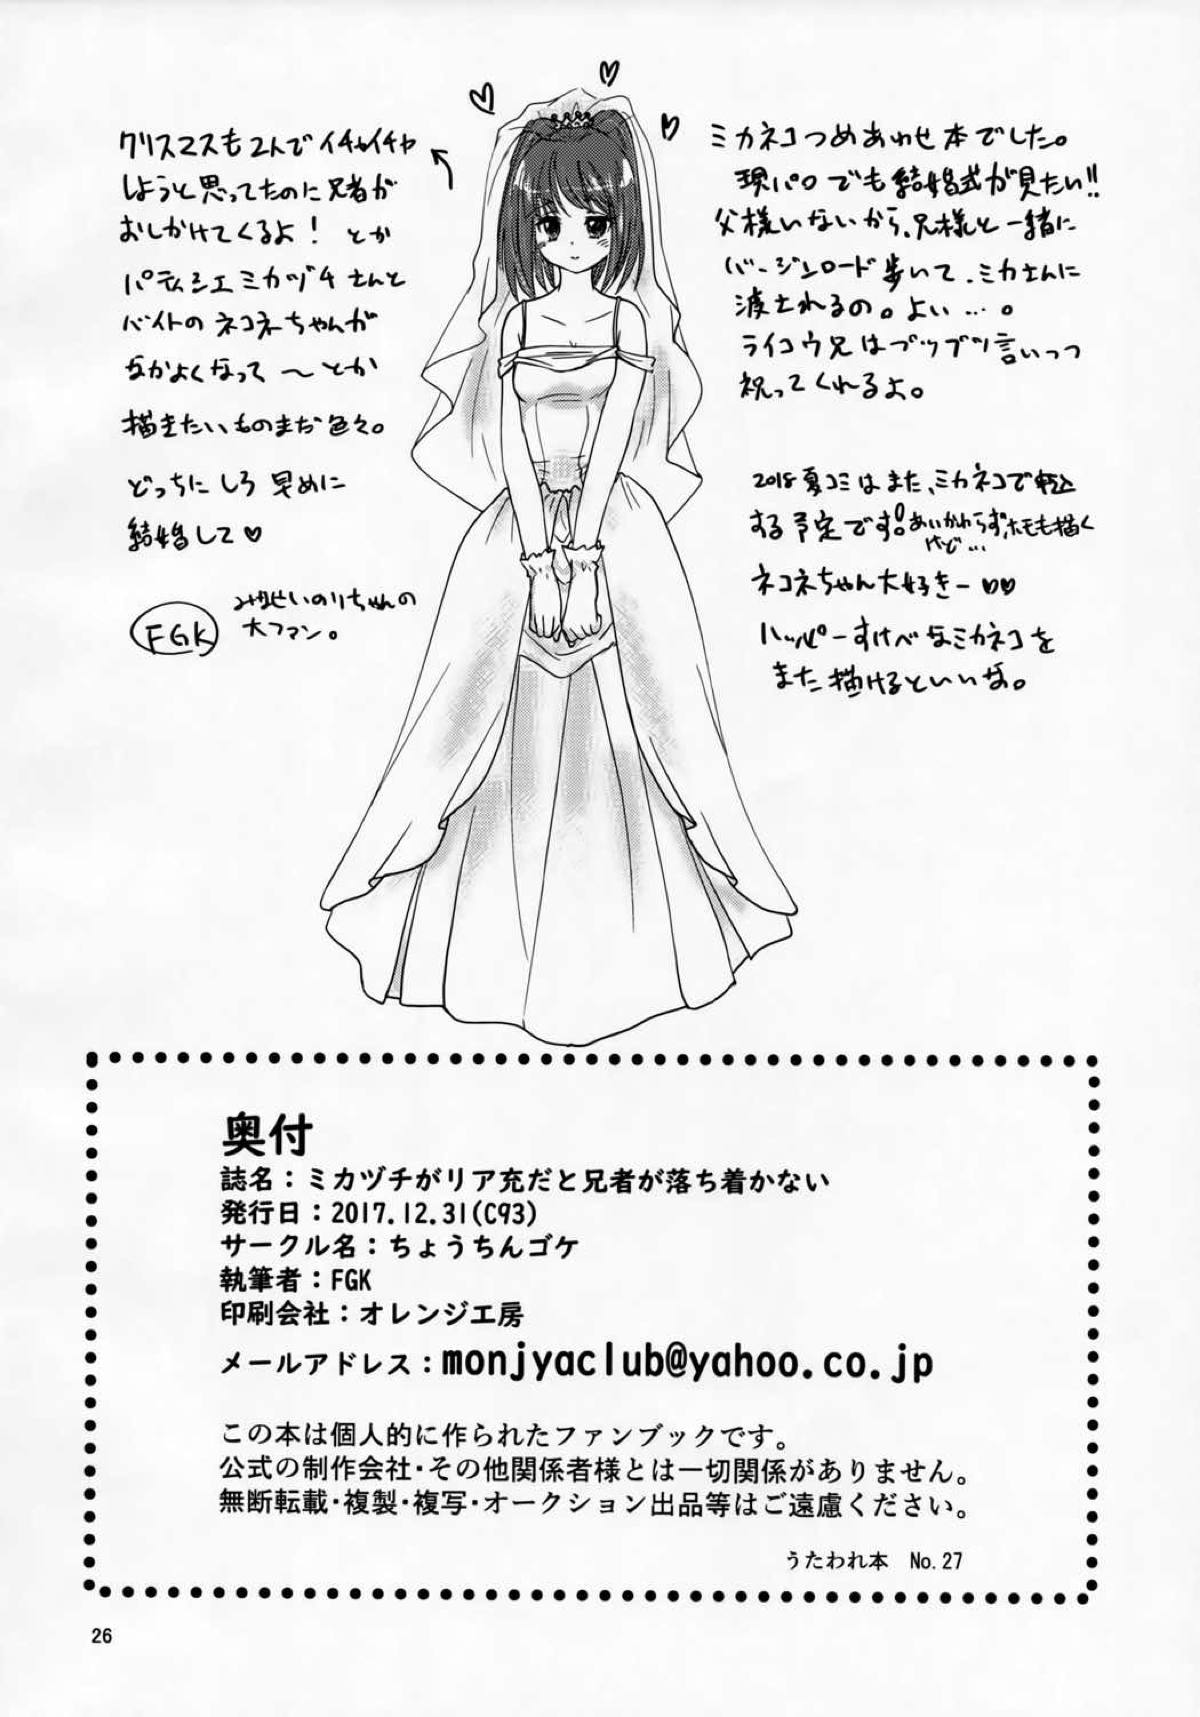 ミカネコつめあわせ本でした。
現パロでも結婚式が見たい!!
父様いないから、兄様と一緒に
バージンロード歩いて、ミカさんに
渡されるの。よい…。
ライコウ兄はブツブツ言いつつ
祝ってくれるよ。
2018夏コミはまた、ミカネコで申込
する予定です!あいかわらずホモも描く
けど…
ネコネちゃん大好きー♡♡
ハッピーすけべなミカネコを
また描けるといいな。
クリスマスも2人でイチャイチャ
しようと思ってたのに兄者が
おしかけてくるよ!とか
パティシエミカヅチさんと
バイトのネコネちゃんが
なかよくなって〜とか
描きたいものまだ色々。
どっちにしろ早めに
結婚して♡
FGK
みやせいのりちゃんの
大ファン。
奥付
誌名:ミカヅチがリア充だと兄者が落ち着かない
発行日:2017.12.31(C93)
サークル名:ちょうちんゴケ
執筆者:FGK
印刷会社:オレンジ工房
メールアドレス:monjyaclub@yahoo.co.jp
この本は個人的に作られたファンブックです。
公式の制作会社・その他関係者様とは一切関係がありません。
無断転載・複製・複写・オークション出品等はご遠慮ください。
うたわれ本 No.27
26